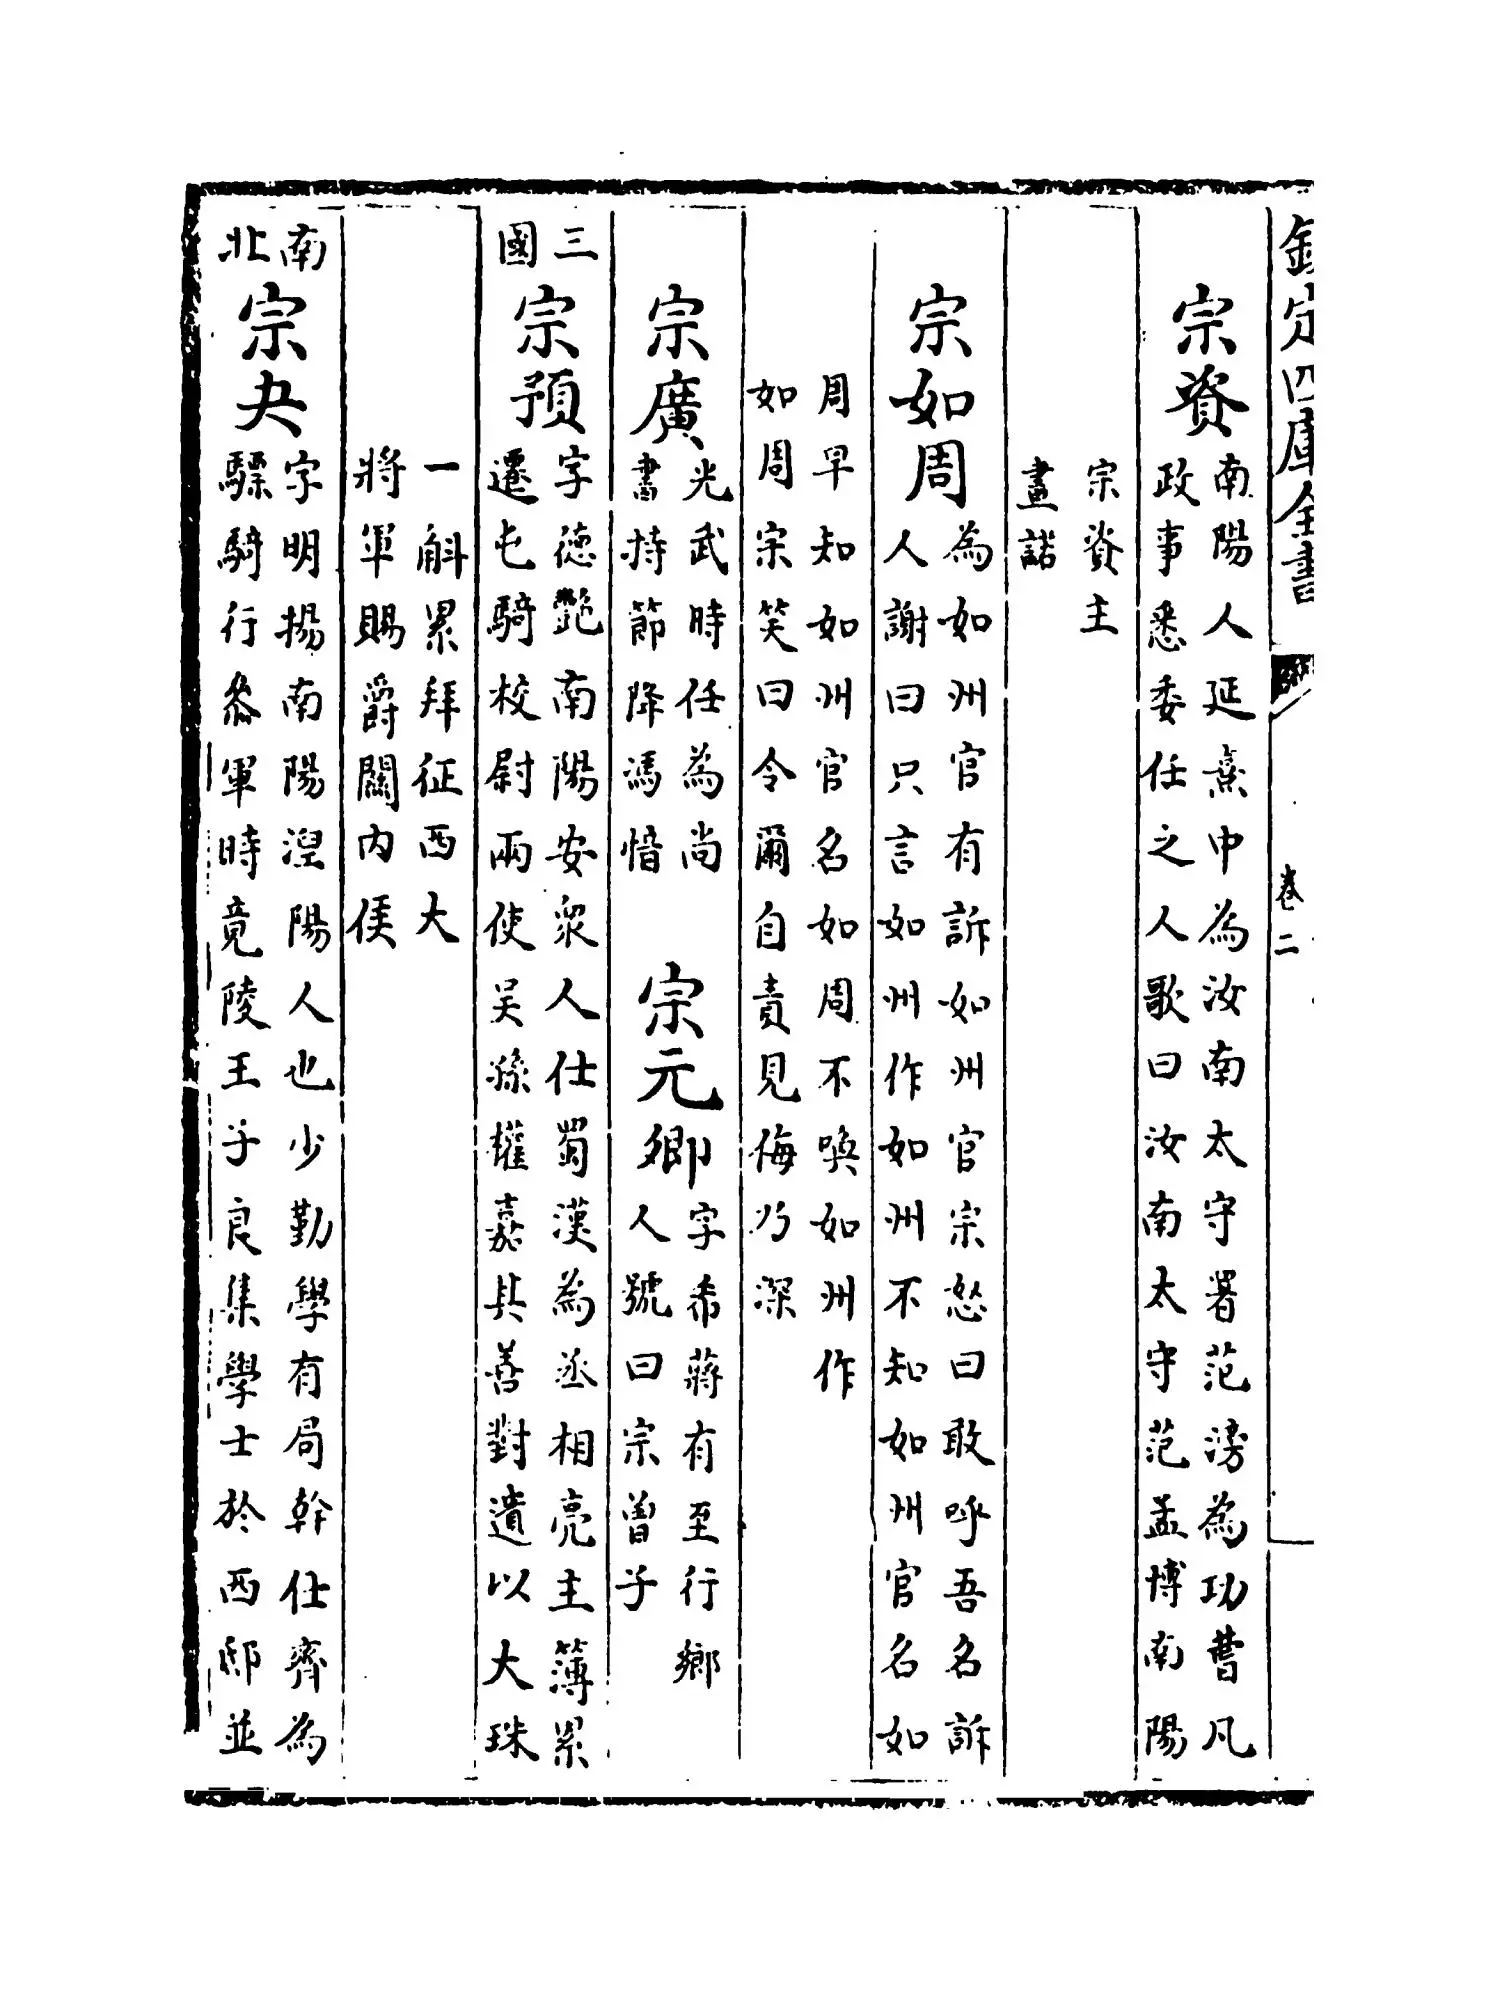 欽定四庫全書
卷二
宗資
南陽人延熹中為汝南太守署范滂為功曹凡
政事悉委任之人歌曰汝南太守范孟博南陽
宗資主
畫諾
宗如周
為如州官有訴如州官宗怒曰敢呼吾名訴
人謝曰只言如州作如州不知如州官名如
周早知如州官名如周不喚如州作
如周宗笑曰令爾自責見侮乃深
宗廣
光武時任為尚
書持節降馮愔
宗元卿
字希蔣有至行鄉
人號曰宗曾子
三國
宗預
字德艷南陽安衆人仕蜀漢為丞相亮主簿累
遷屯騎校尉兩使吳孫權嘉其善對遺以大珠
一斛累拜征西大
將軍賜爵關內侯
南北
宗夬
字明揚南陽湼陽人也少勤學有局幹仕齊為
驃騎行叅軍時竟陵王子良集學士於西邸並